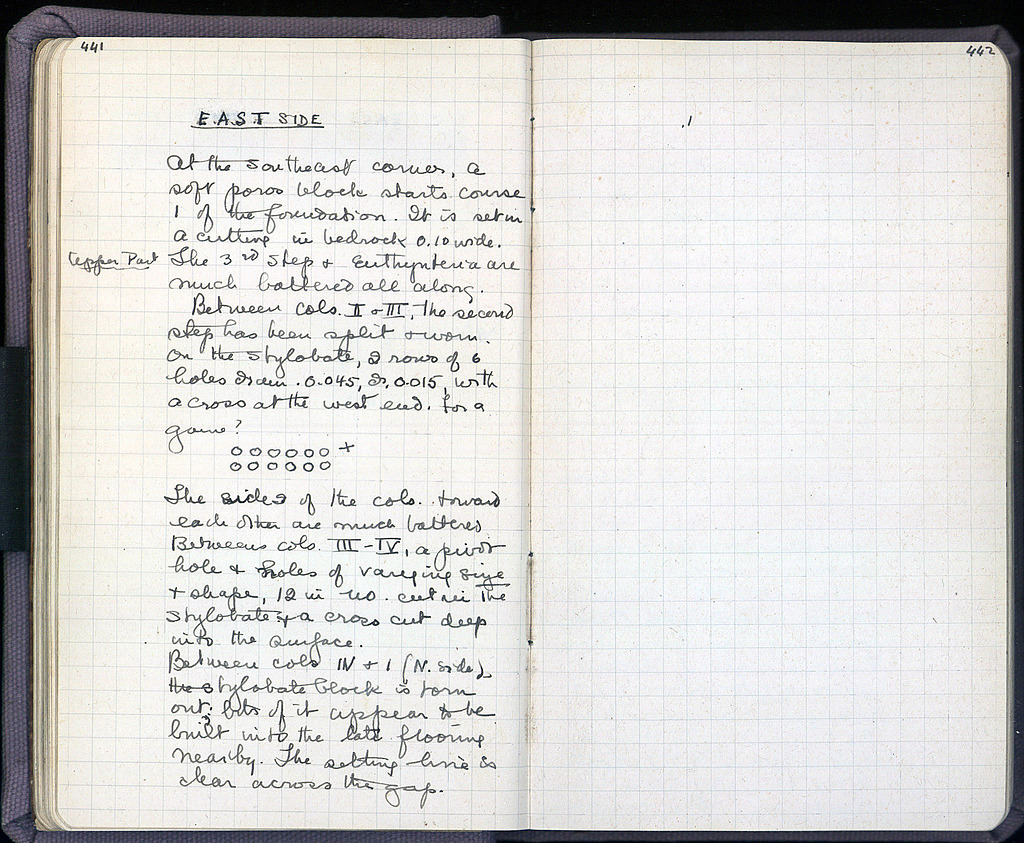 441
442
EAST SIDE
At the southeast corner, a
soft poros block starts course
1 of the foundation. It is set in
a cutting in bedrock 0.10 wide.
Upper Part The 3rd step & Euthynteria are
much battered all along.
Between cols. II & III, the second
step has been split & worn.
On the stylobate, 2 rows of 6
holes diam. 0.045, D. 0.015, with
a cross at the west end. For a
game?
o o o o o o +
o o o o o o
The sides of the cols. toward
each other are much battered
Between cols. III - IV, a pivot
hole & holes of varying size
& shape, 12 in no. cut in the
stylobate & a cross cut deep
into the surface.
Between cols IV & 1 (N. side),
the stylobate block is torn
out; bits of it appear to be
built into the late flooring
nearby. The setting line is
clear across the gap.